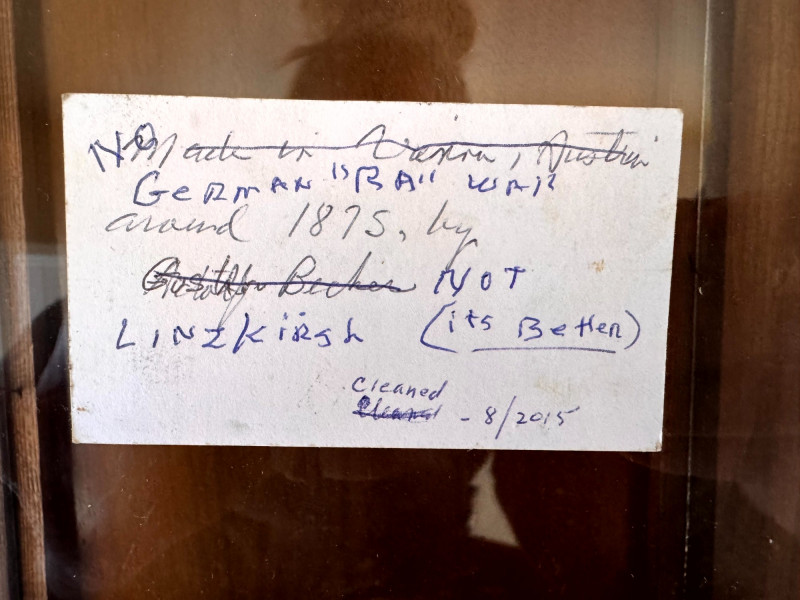 NO Made in Vienna, Austria
GERMAN "RA" WAR
around 1875, by
Becker NOT
LINZKIRSH (its Better)
cleaned
- 8/2015